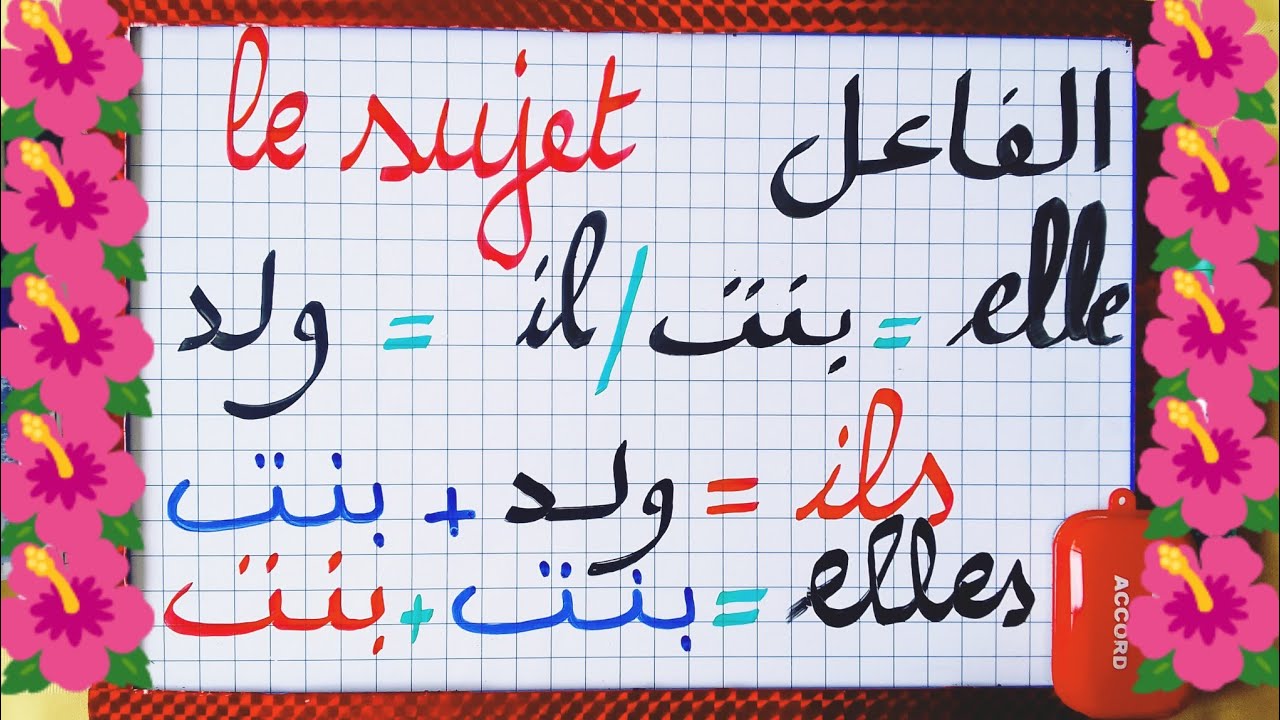 le sujet الفاعل
ولد = il / بنت = elle
بنت + ولد = ils
بنت + بنت = elles
ACCORD